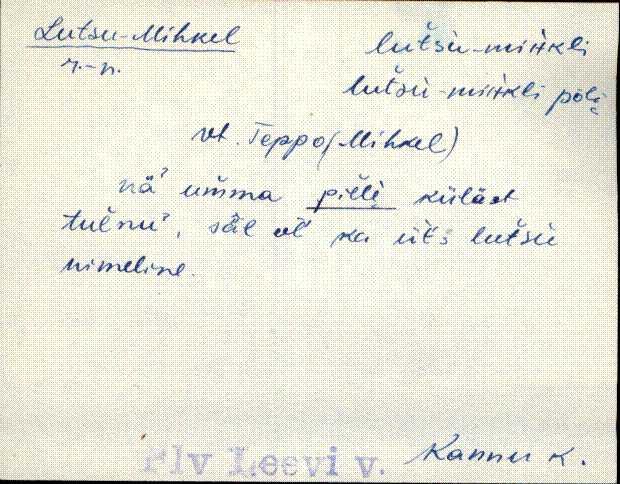 Lutsu-Mihkel lutšu-miikli
r.-n. lutšu-miikli põli
vt. Teppo(-Mihkel)
näʼ umma pilli küläst
tulnuʼ, sääl ol' ka üts lutšu
nimeline.
Plv Leevi v. Kannu K.